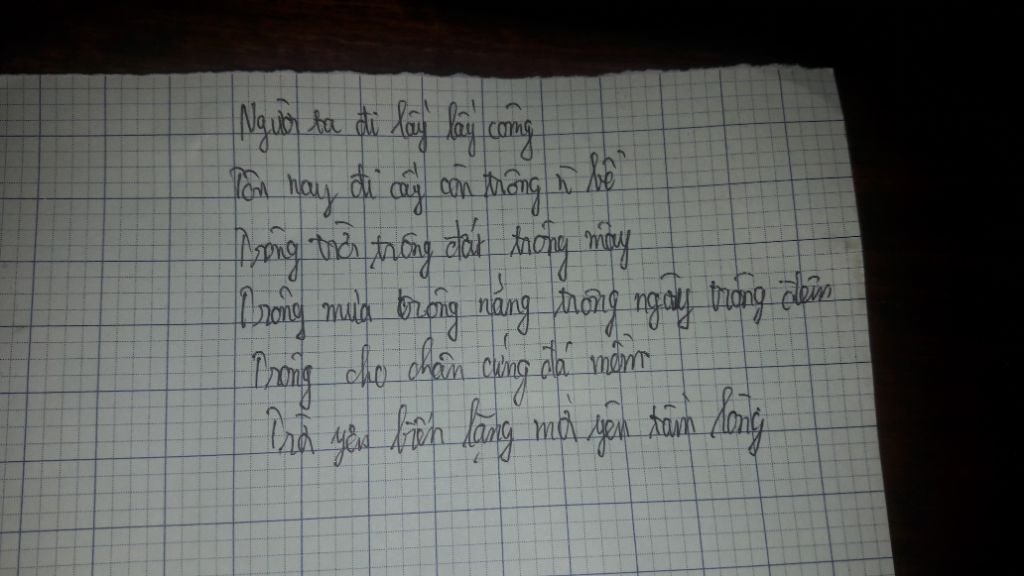 Người ta đi lấy lấy công
Tôn nay đi cấy còn trông n bề
Trông trời trông đất trông mây
Trông mưa trông nắng trông ngày trông đêm
Trông cho chân cứng đá mềm
Trời yên biển lặng mới yên tấm lòng